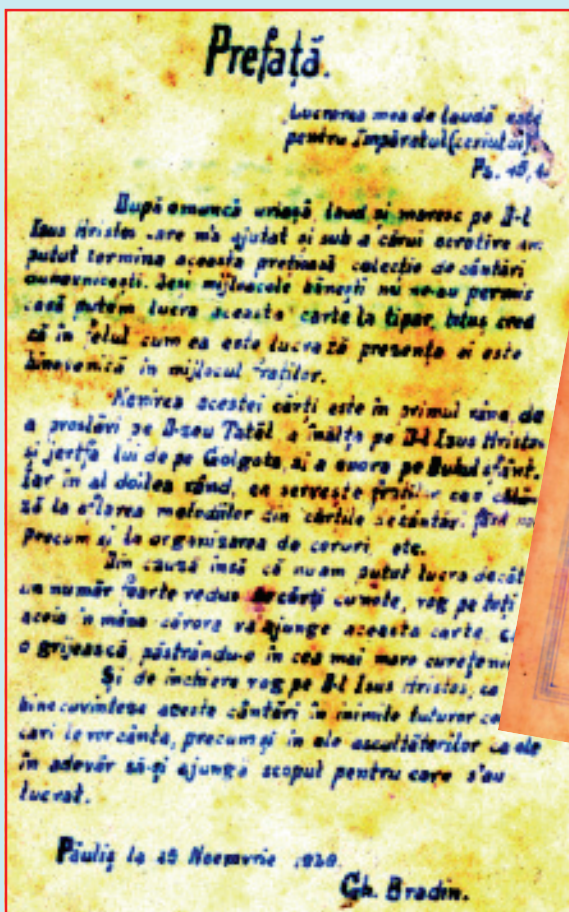 Prefață.
Lucrarea mea de laudă este
pentru Împăratul (cerului).
Ps. 45,
După o muncă uriașă, laud și maresc pe D-l
Isus Hristos care m'a ajutat și sub a cărui ocrotire am
putut termina aceasta prețioasă colecție de cântări
dumnezeiești. Deși mijloacele bănești nu ne-au permis
casă putem lucra aceasta carte la tipar, totuș cred
că în felul cum ea este lucrată prezența ei este
binevenită în mijlocul fraților.
Menirea acestei cărți este în primul rând, de
a proslăvi pe D-zeu Tatăl, a înălța pe D-l Isus Hristos
și jertfa lui de pe Golgota, și a onora pe Duhul sfânt.
Iar în al doilea rând, ea servește fraților
la aflarea melodiilor din cărțile de cântări fără
precum și la organizarea de coruri, etc.
Din cauză însă că nu am putut lucra decât
un număr foarte redus de cărți cu note, rog pe toți
aceia în mâna cărora va ajunge aceasta carte,
o grijească, păstrându-o în cea mai mare curățenie
Și de închiere rog pe D-l Isus Hristos, ca
binecuvinteze aceste cântări în inimile tuturor
cari le vor cânta, precum și în ale ascultătorilor ca ele
în adevăr să-și ajungă scopul pentru care s'au
lucrat.
Păuliș la Noemvrie
Gh. Bradin.